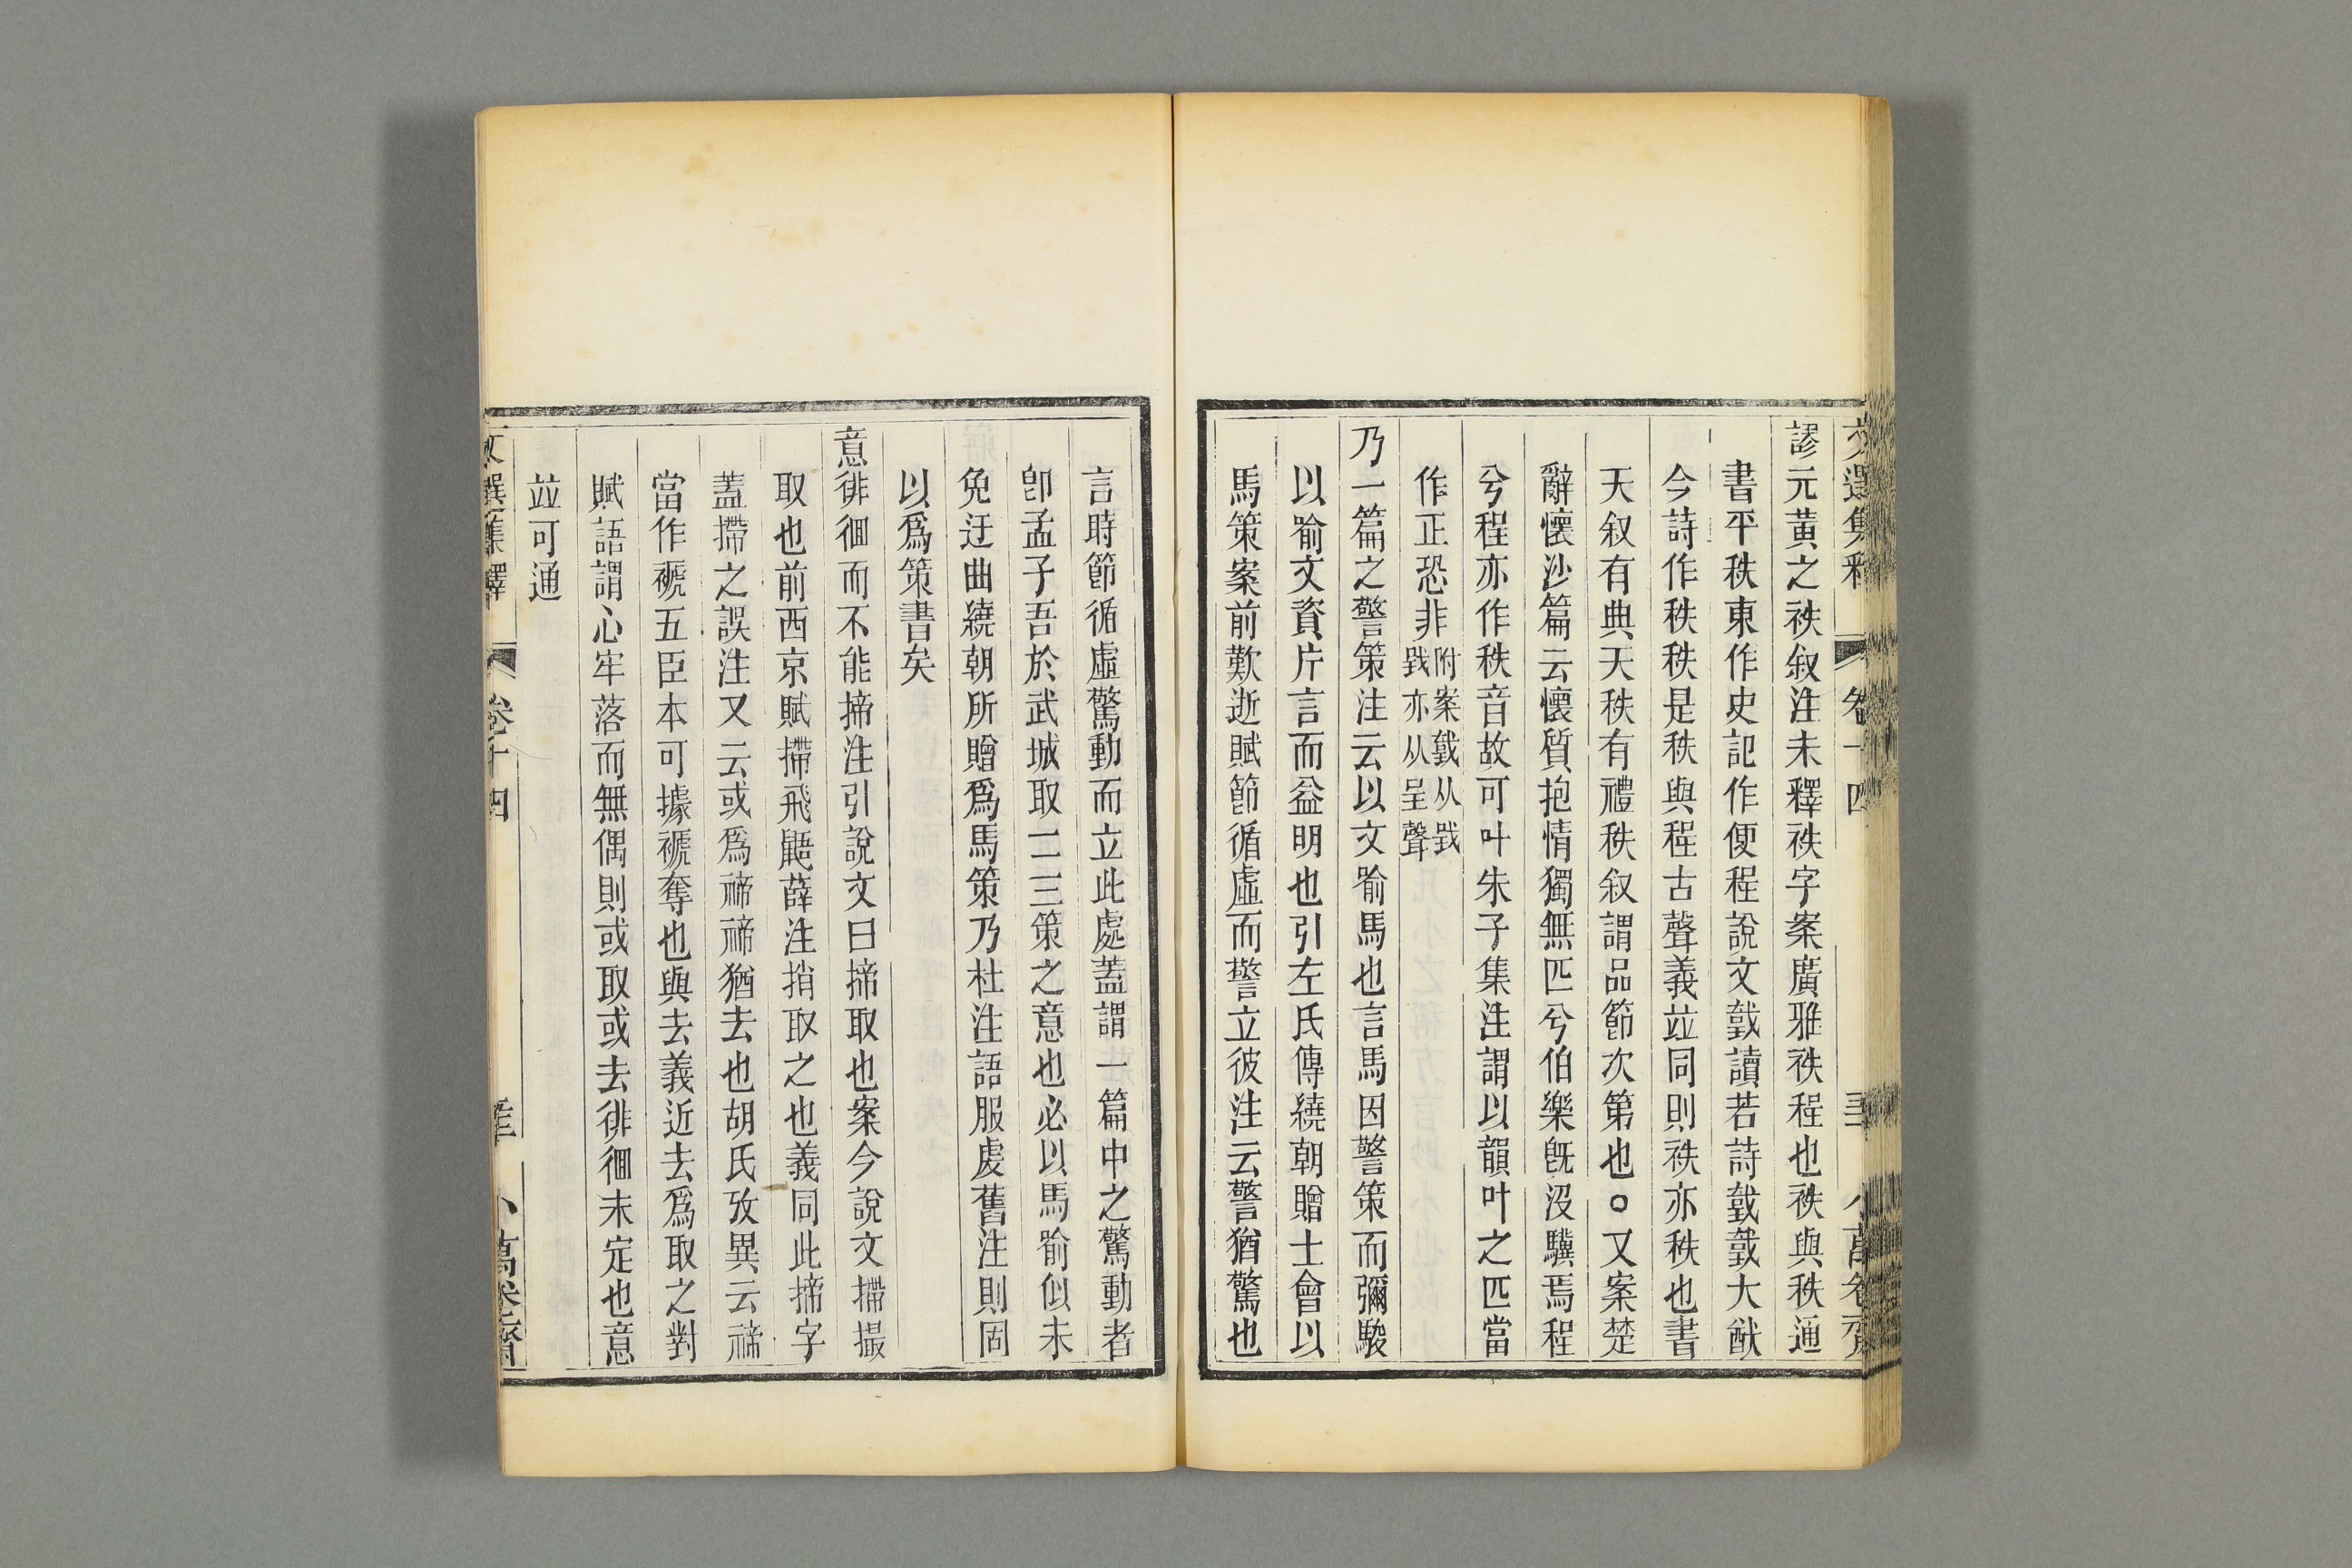 文選集釋 卷十四 三 小萬卷齋
謬元黃之袟叙注未釋袟字案廣雅袟程也袟與秩通
書平秩東作史記作便程說文𢧜讀若詩𢧜𢧜大猷
今詩作秩秩是秩與程古聲義竝同則袟亦秩也書
天叙有典天秩有禮秩叙謂品節次第也○又案楚
辭懷沙篇云懷質抱情獨無匹兮伯樂旣沒驥焉程
兮程亦作秩音故可叶朱子集注謂以韻叶之匹當
作正恐非附案𢧜从㦷
㦷亦从呈聲
乃一篇之警策注云以文喻馬也言馬因警策而彌駿
以喻文資片言而益明也引左氏傳繞朝贈士會以
馬策案前歎逝賦節循虛而警立彼注云警猶驚也
言時節循虛驚動而立此處蓋謂一篇中之驚動者
卽孟子吾於武城取二三策之意也必以馬喻似未
免迂曲繞朝所贈爲馬策乃杜注語服虔舊注則固
以爲策書矣
意徘徊而不能揥注引說文曰揥取也案今說文㩅撮
取也前西京賦㩅飛鼯薛注捎取之也義同此揥字
蓋㩅之誤注又云或爲禘禘猶去也胡氏攷異云禘
當作褫五臣本可據褫奪也與去義近去爲取之對
賦語謂心牢落而無偶則或取或去徘徊未定也意
竝可通
文選集釋 卷十四 小萬卷齋